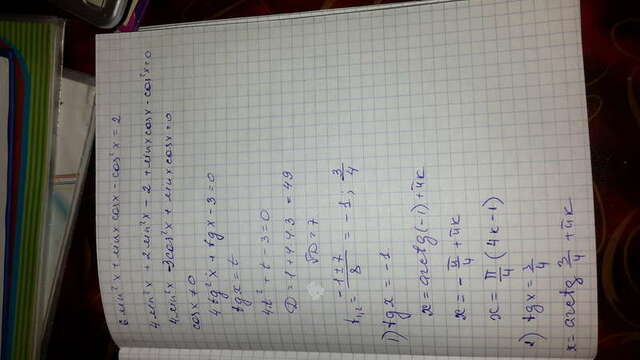 6 sin²x + sinx cosx - cos²x = 2
4 sin²x + 2 sin²x - 2 + sinx cosx - cos²x = 0
4 sin²x - 3cos²x + sinx cosx = 0
cosx ≠ 0
4 tg²x + tgx - 3 = 0
tgx = t
4t² + t - 3 = 0
D = 1 + 4·4·3 = 49
√D = 7
t₁,₂ = (-1 ± 7)/8 = -1; 3/4
1) tgx = -1
x = arctg(-1) + πk
x = -π/4 + πk
x = π/4 (4k - 1)
2) tgx = 3/4
x = arctg 3/4 + πk